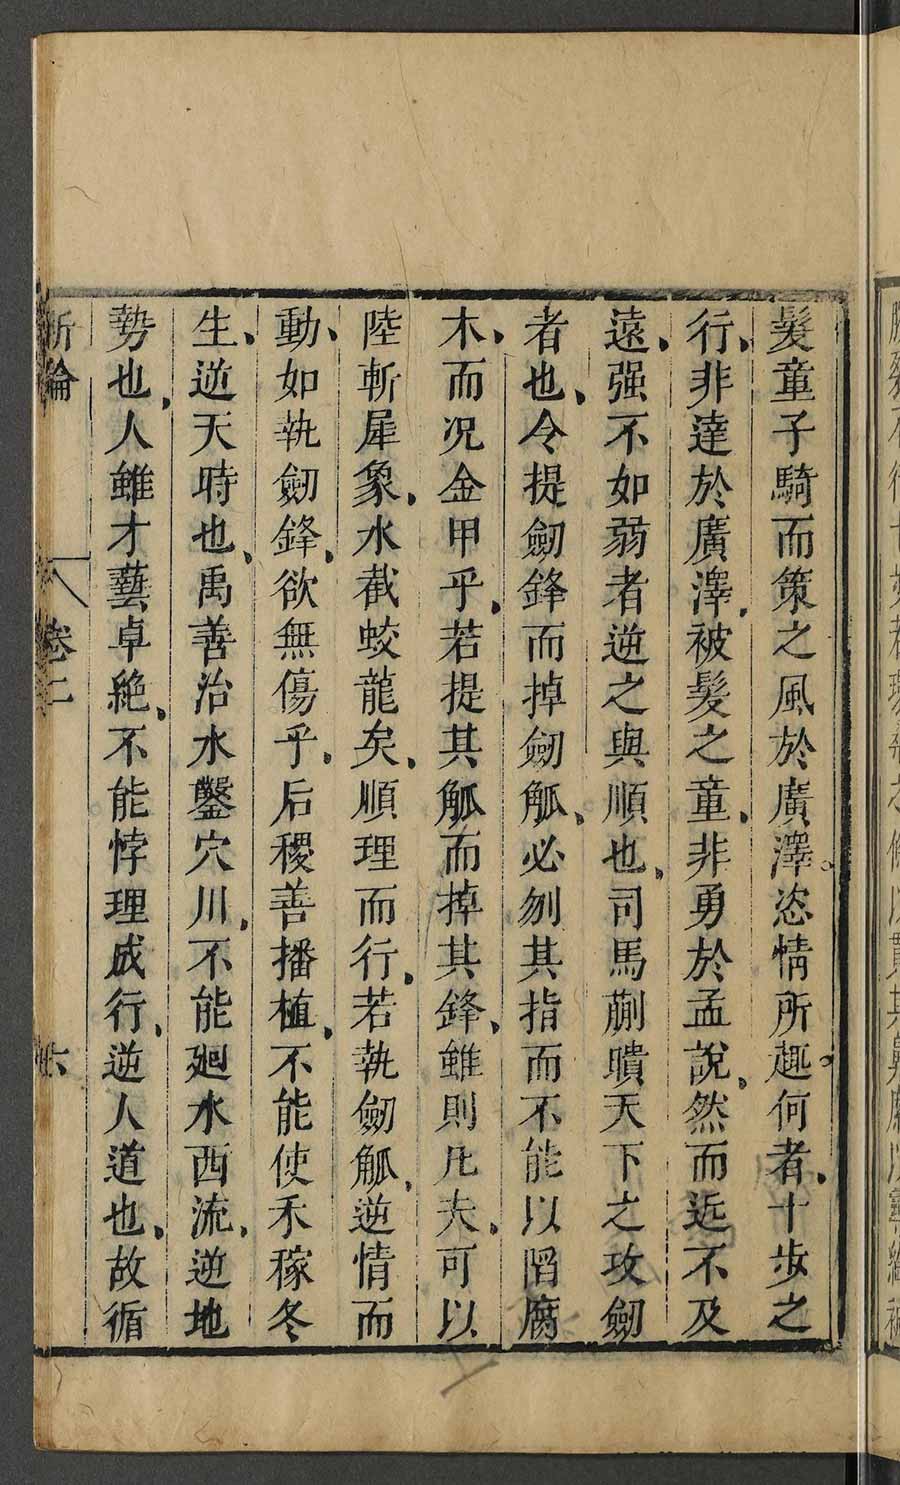 髮童子騎而策之風於廣澤恣情所趣何者十步之
行非達於廣澤被髮之童非勇於孟說然而近不及
遠强不如弱者逆之與順也司馬蒯聵天下之攻劒
者也令提劒鋒而掉劒觚必刎其指而不能以陷腐
木而况金甲乎若提其觚而掉其鋒雖則凡夫可以
陸斬犀象水截蛟龍矣順理而行若執劒觚逆情而
動如執劒鋒欲無傷乎后稷善播植不能使禾稼冬
生逆天時也禹善治水鑿穴川不能廻水西流逆地
勢也人雖才藝卓絶不能悖理成行逆人道也故循
新論 卷二 六